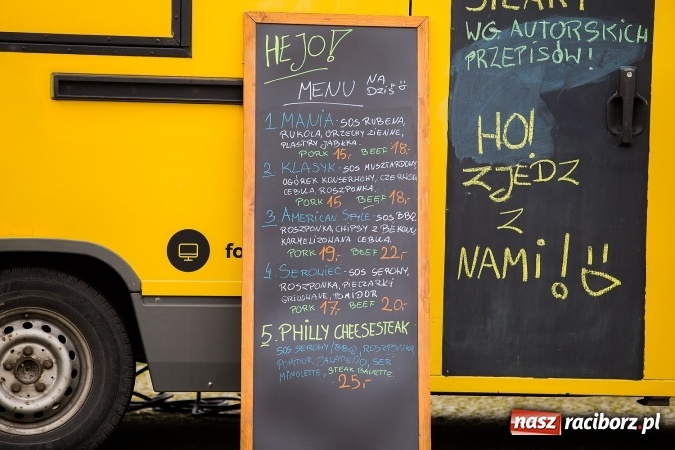 HEJO!
MENU NA DZIŚ
1 MANIA - SOS RUBENA,
RUKOLA, ORZECHY ZIEMNE,
PLASTRY JABŁKA.
PORK 15,- BEEF 18,-
2 KLASYK - SOS MUSZTARDOWY,
OGÓREK KONSERWOWY, CZERWONA
CEBULA, ROSZPONKA.
PORK 15 BEEF 18,-
3 AMERICAN STYLE - SOS BBQ,
ROSZPONKA, CHIPSY Z BEKONU,
KARMELIZOWANA CEBULA.
PORK 19,- BEEF 22,-
4 SEROWIEC - SOS SEROWY,
ROSZPONKA, PIECZARKI
GRILLOWANE, POMIDOR
PORK 17,- BEEF 20,-
5. PHILLY CHEESESTEAK
SOS SEROWY/BBQ, ROSZPONKA,
POMIDOR, JALAPEÑO, SER
MIMOLETTE, STEAK BAVETTE
25,-
WG. AUTORSKICH
PRZEPISÓW!
HO!
ZJEDZ
Z
NAMI!
fo
nasz raciborz.pl